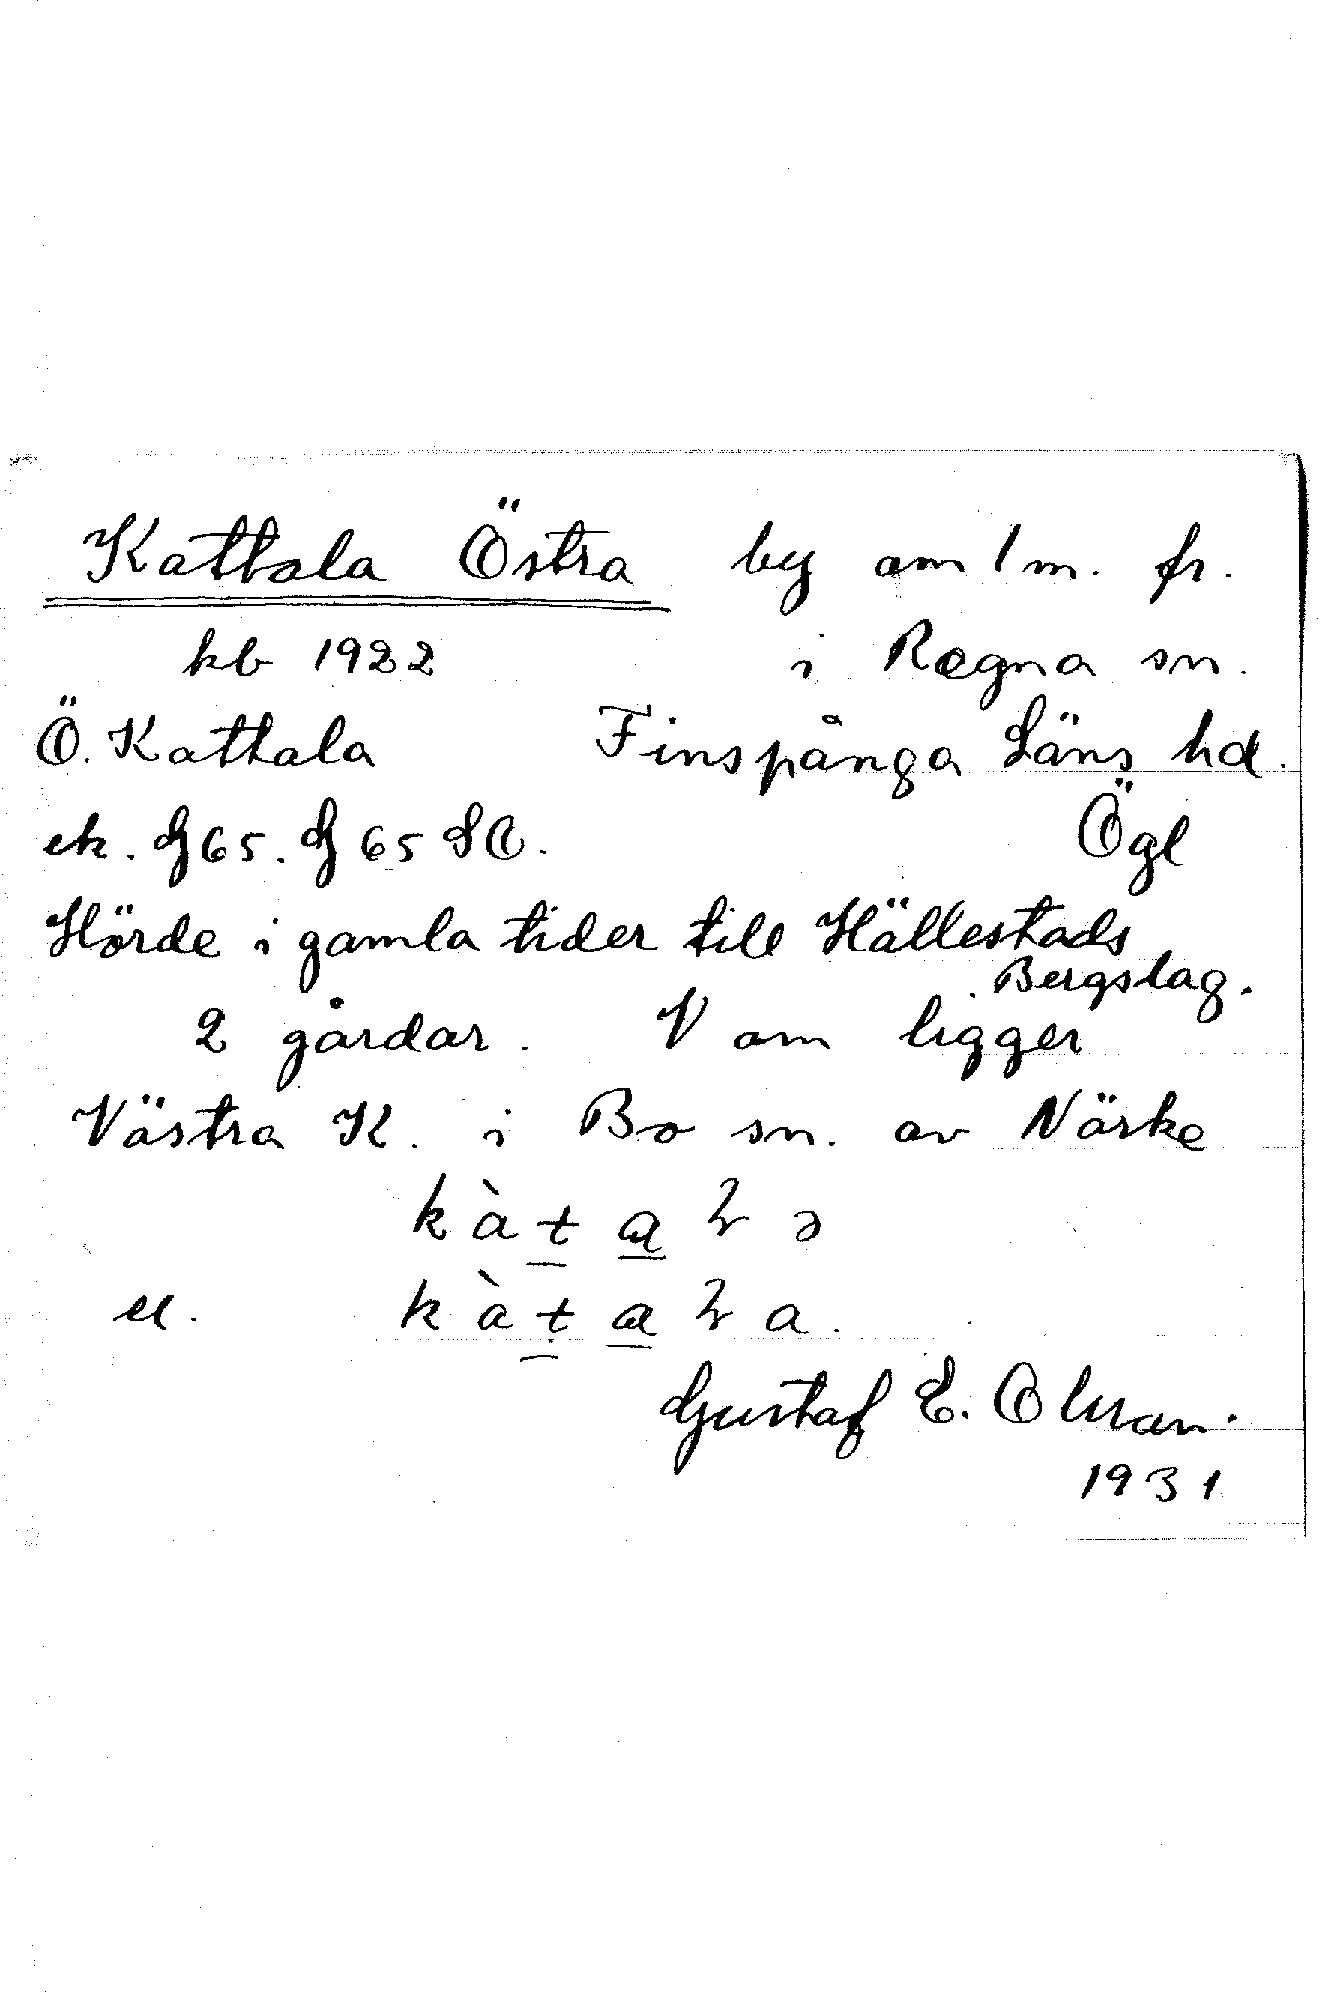 Kattala Östra by om 1 m. fr.
kb 1922 i Regna sn.
Ö. Kattala Finspånga Läns hd.
ek. G 65. G 65 SO. Ögl
Hörde i gamla tider till Hällestads
Bergslag.
2 gårdar. V om ligger
Västra K. i Bo sn. av Närke
k à t a ɽ ə
el. k à t a ɽ a.
Gustaf E. Olsson.
1931